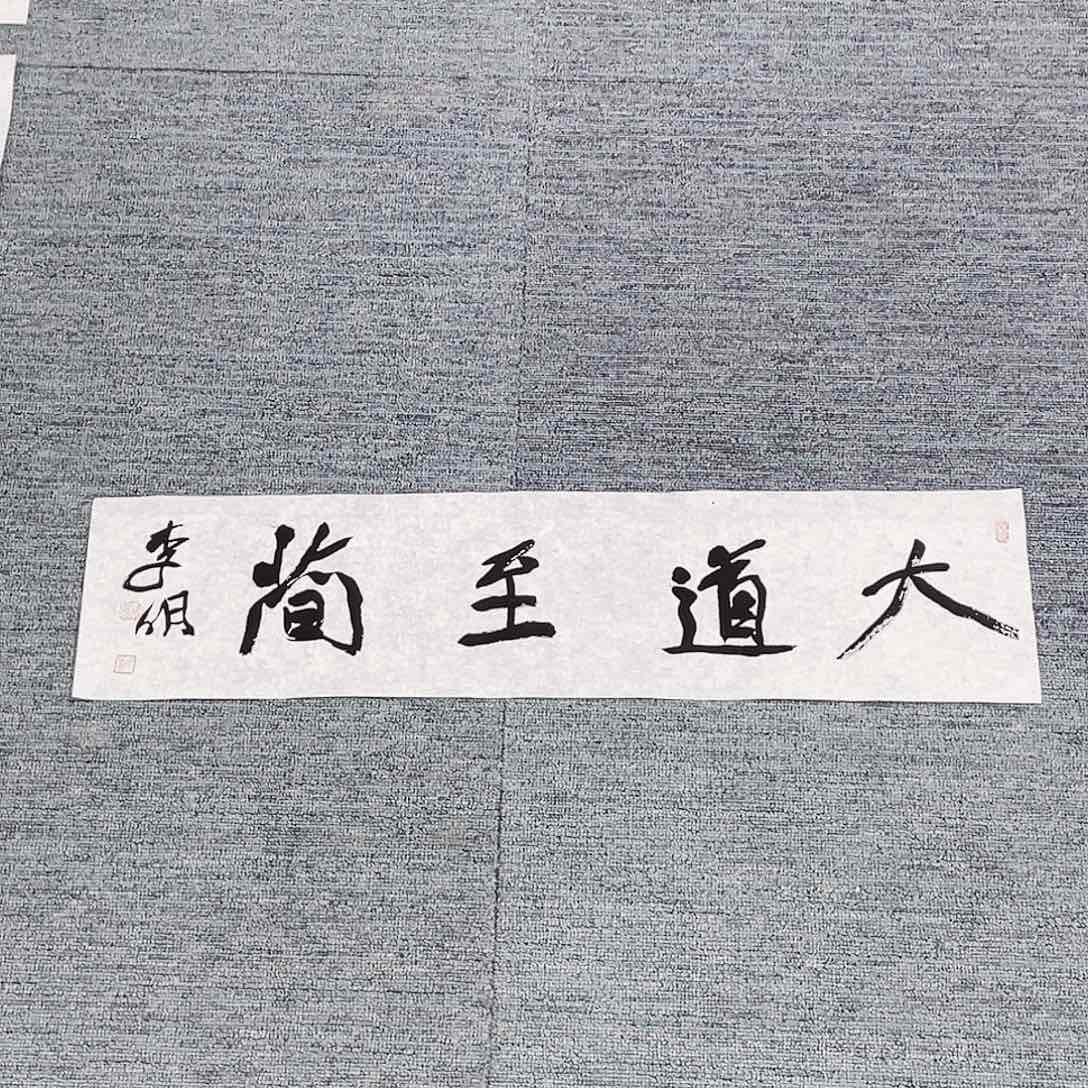 大道至简
李明